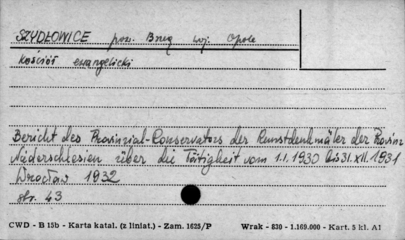 SZYDŁOWICE pow. Brzeg woj. Opole
Kościół ewangelicki
Bericht des Provinzial-Konservators der Kunstdenkmäler der Provinz
Niederschlesien über die Tätigkeit vom 1.I.1930 bis 31.XII.1931
Wrocław 1932
str. 43
CWD - B 15b - Karta katal. (z liniat.) - Zam. 1625/P Wrak - 830 - 1.169.000 - Kart. 5 kl. A1